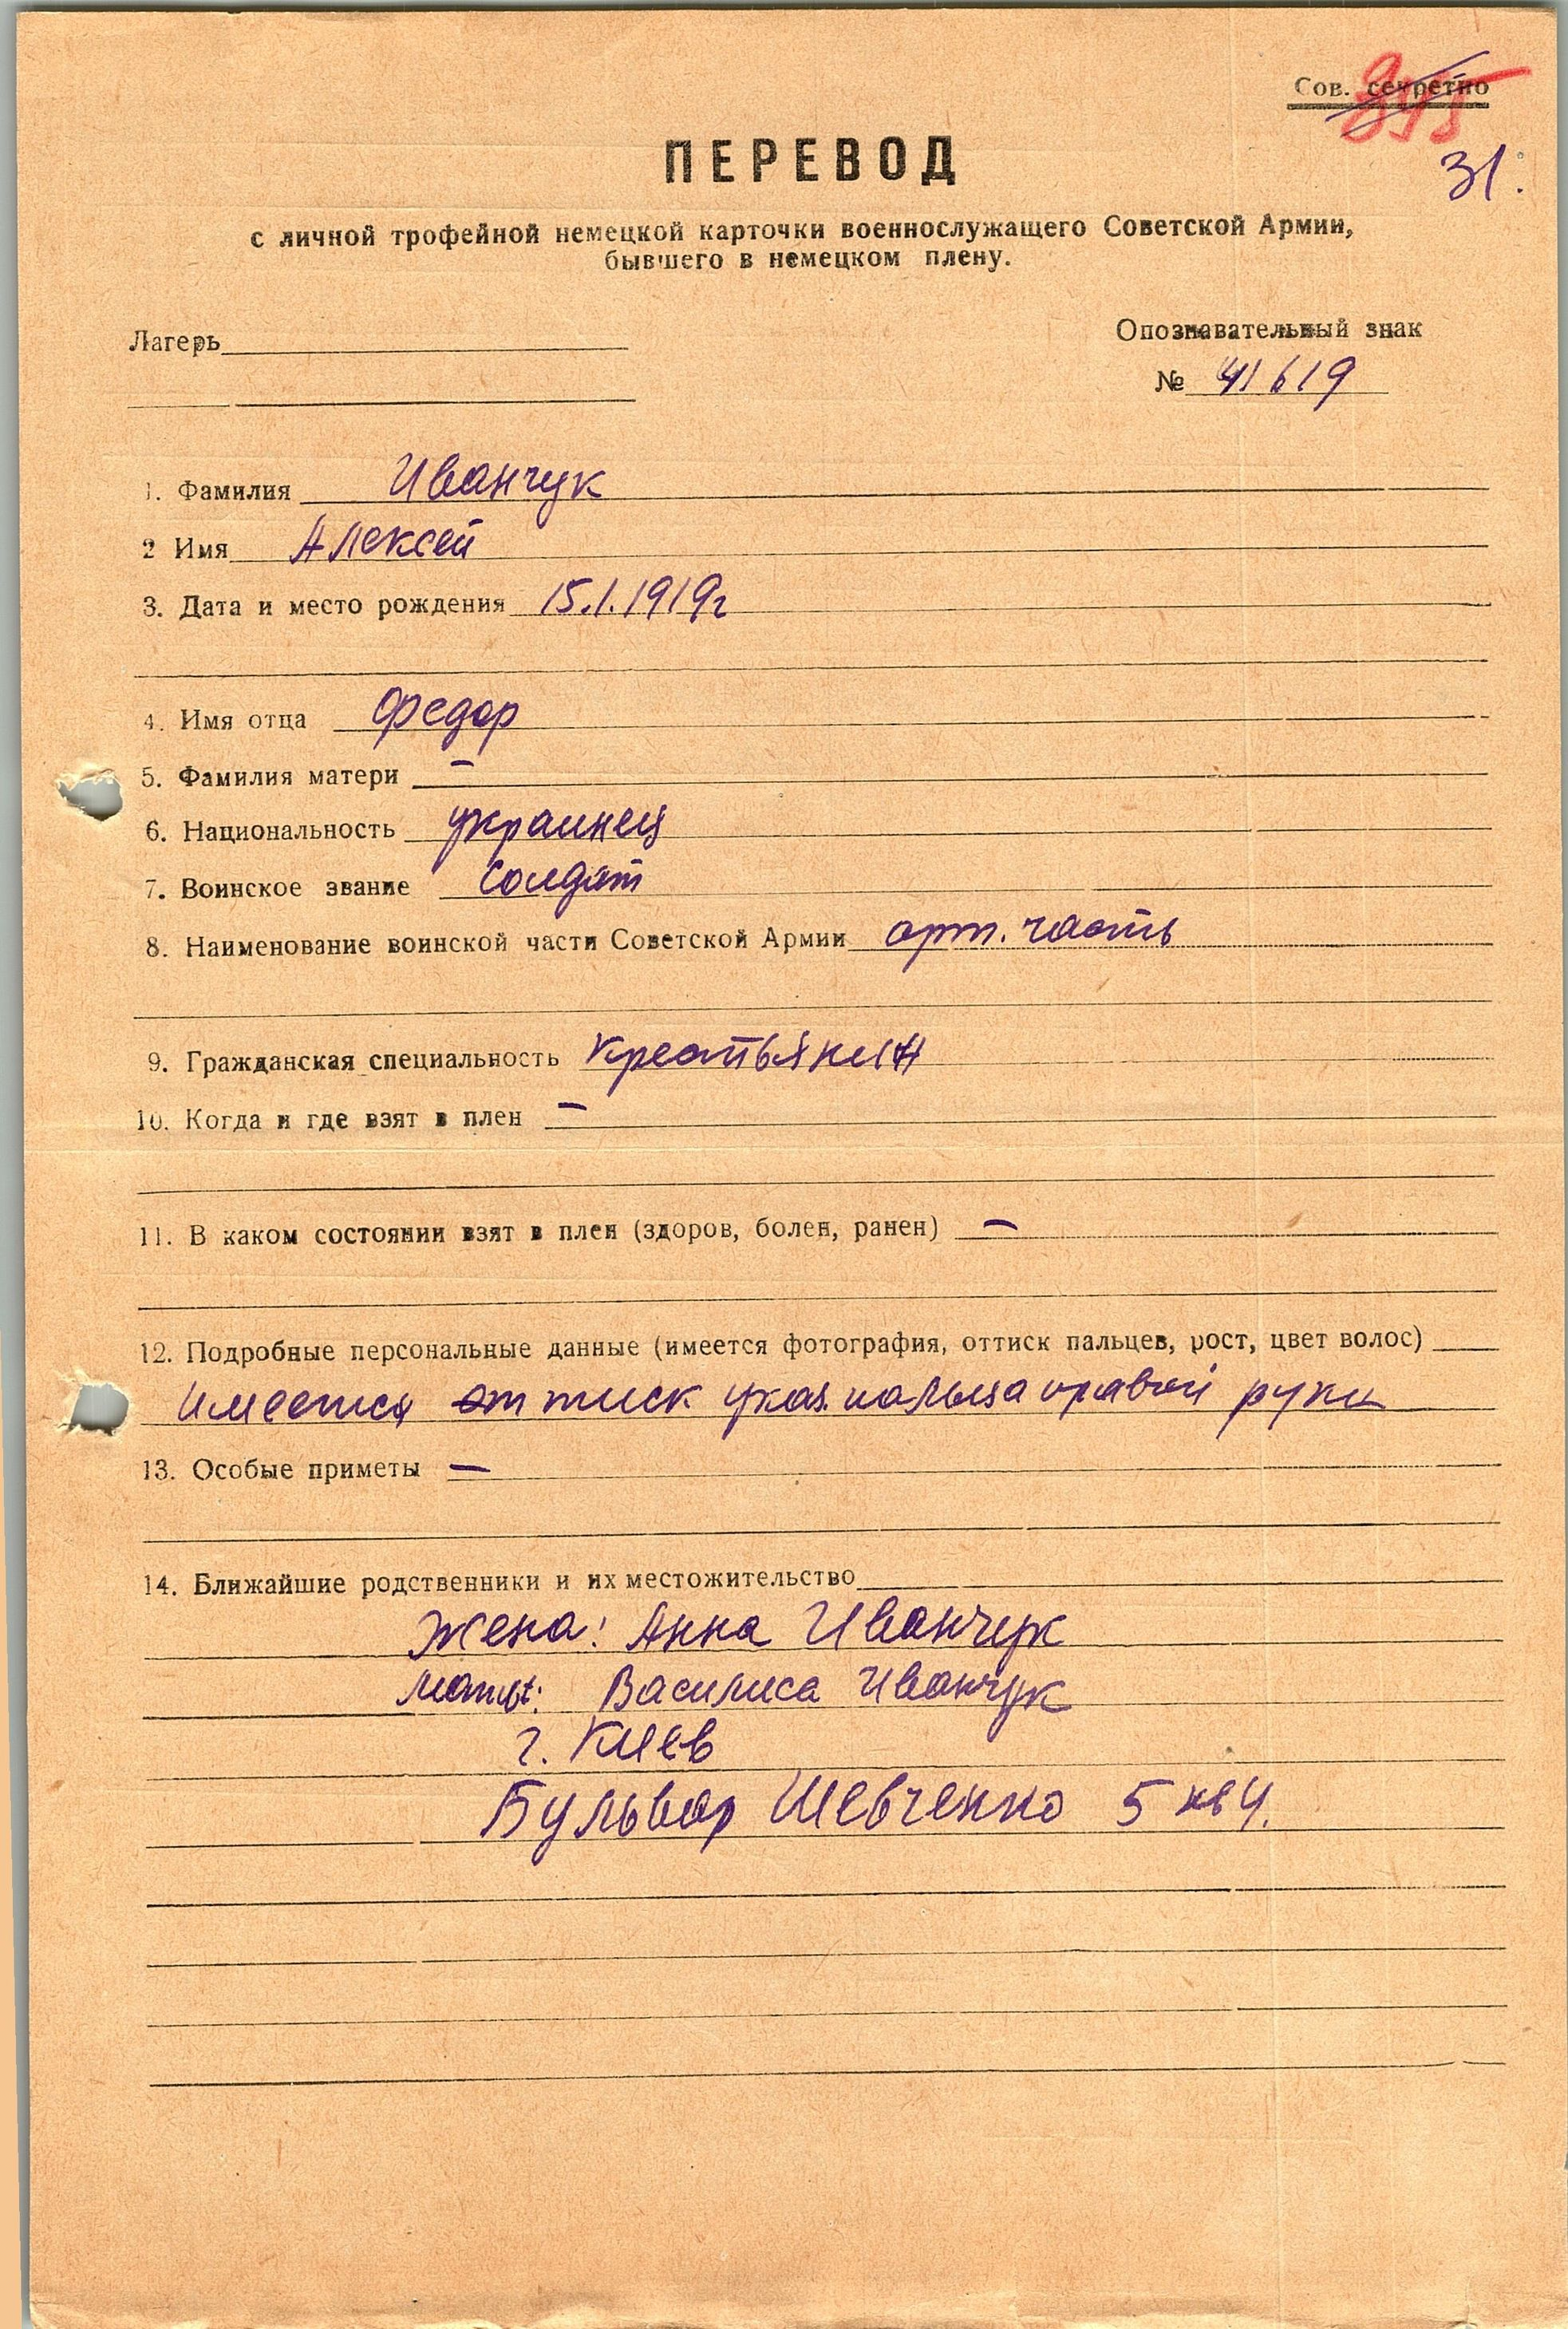 Сов. секретно
31.
ПЕРЕВОД
с личной трофейной немецкой карточки военнослужащего Советской Армии,
бывшего в немецком плену.
Лагерь
Опознавательный знак
№ 41619
1. Фамилия Иванчук
2 Имя Алексей
3. Дата и место рождения 15.1.1919г
4. Имя отца Федор
5. Фамилия матери —
6. Национальность украинец
7. Воинское звание Солдат
8. Наименование воинской части Советской Армии арт. часть
9. Гражданская специальность крестьянин
10. Когда и где взят в плен —
11. В каком состоянии взят в плен (здоров, болен, ранен) —
12. Подробные персональные данные (имеется фотография, оттиск пальцев, рост, цвет волос)
Имеется оттиск указ. пальца правой руки
13. Особые приметы —
14. Ближайшие родственники и их местожительство
Жена: Анна Иванчук
мать: Василиса Иванчук
г. Киев
Бульвар Шевченко 5 кв 4.